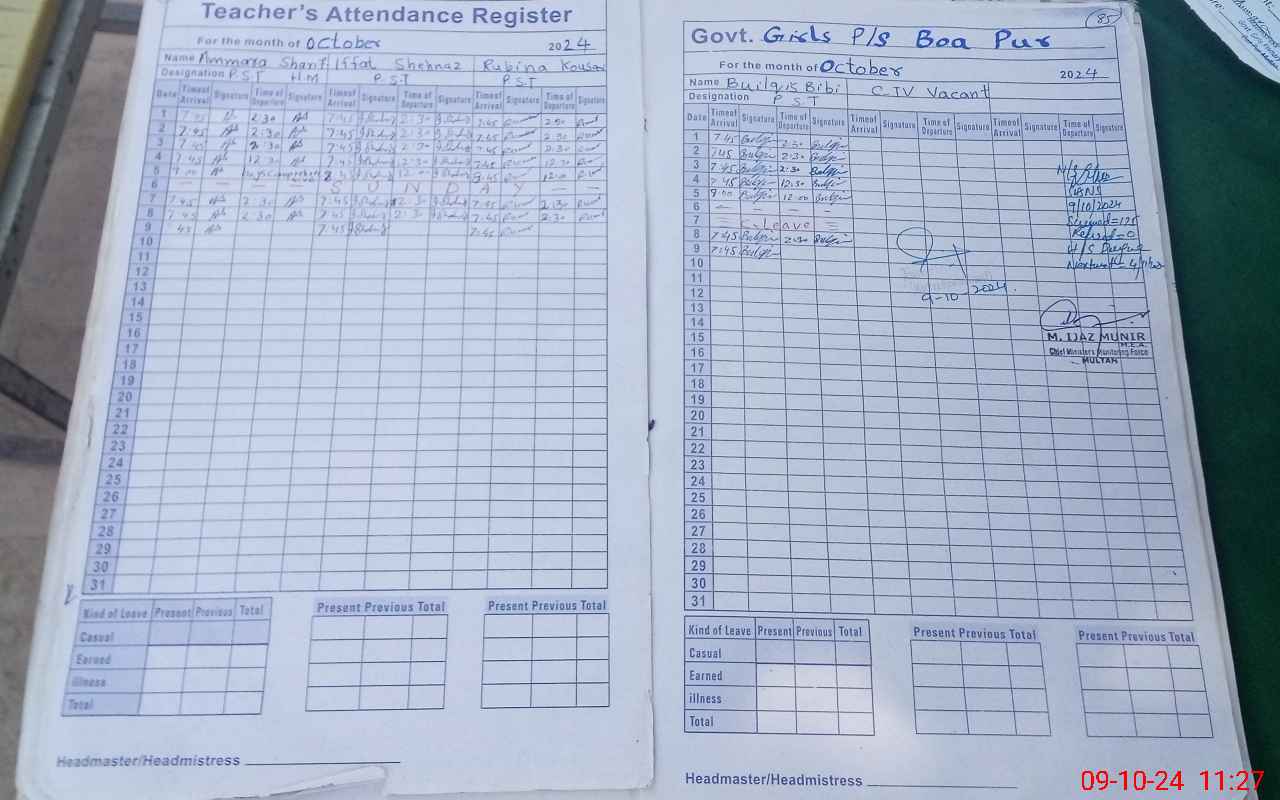 Teacher's Attendance Register
For the month of October 2024
Name Ammara Sharif Iffat Shehnaz Rubina Kousar
Designation P.S.T H.M P.S.T P.S.T
Date Time of Arrival Signature Time of Departure Signature Time of Arrival Signature Time of Departure Signature Time of Arrival Signature Time of Departure Signature
1 7:45 2:30 7:45 2:30 7:45 2:30
2 7:45 2:30 7:45 2:30 7:45 2:30
3 7:45 2:30 7:45 2:30 7:45 2:30
4 7:45 12:30 7:45 7:45 12:30
5 12:00
6 — — — — S U N D A Y — —
7 7:45 2:30 7:45 2:30 7:45 2:30
8 7:45 2:30 7:45 2:30 7:45 2:30
9 45 7:45 7:45
10
11
12
13
14
15
16
17
18
19
20
21
22
23
24
25
26
27
28
29
30
31
Kind of Leave Present Previous Total Present Previous Total Present Previous Total
Casual
Earned
illness
Total
Headmaster/Headmistress
85
Govt. Girls P/S Boa Pur
For the month of October 2024
Name Builqis Bibi C IV Vacant
Designation P S T
Date Time of Arrival Signature Time of Departure Signature Time of Arrival Signature Time of Departure Signature Time of Arrival Signature Time of Departure Signature
1 7:45 Bulqis 2:30 Bulqis
2 7:45 Bulqis 2:30 Bulqis
3 7:45 Bulqis 2:30 Bulqis
4 7:45 Bulqis 12:30 Bulqis
5 9:00 Bulqis 12:00 Bulqis
6 — — — —
7 C-Leave
8 7:45 Bulqis 2:30 Bulqis
9 7:45 Bulqis
10
11
12
13
14
15
16
17
18
19
20
21
22
23
24
25
26
27
28
29
30
31
9/10/2024
Screened=125
Refered=0
9-10-2024.
M. IJAZ MUNIR
M.E.A.
Chief Ministers Monitoring Force
MULTAN
Kind of Leave Present Previous Total Present Previous Total Present Previous Total
Casual
Earned
illness
Total
Headmaster/Headmistress
09-10-24 11:27